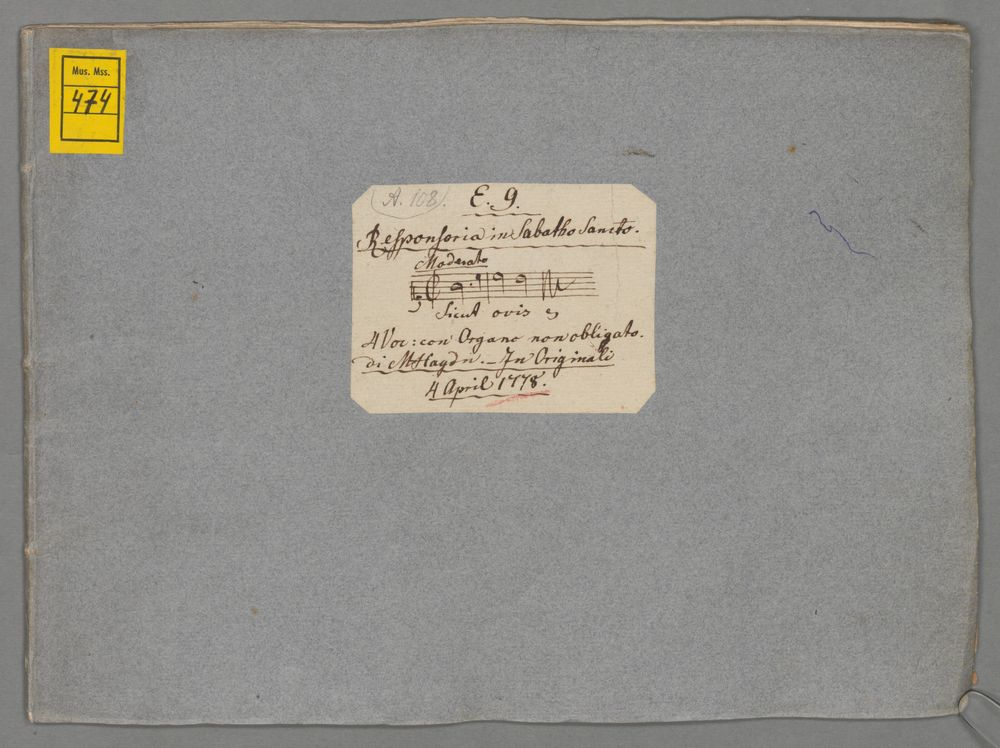 Mus. Mss.
474
A. 108.
E. 9.
Responsoria in Sabatho Sancto.
Moderato
Sicut ovis
4 Voc: con Organo non obligato.
di MHaydn. – In Originali
4 April 1778.